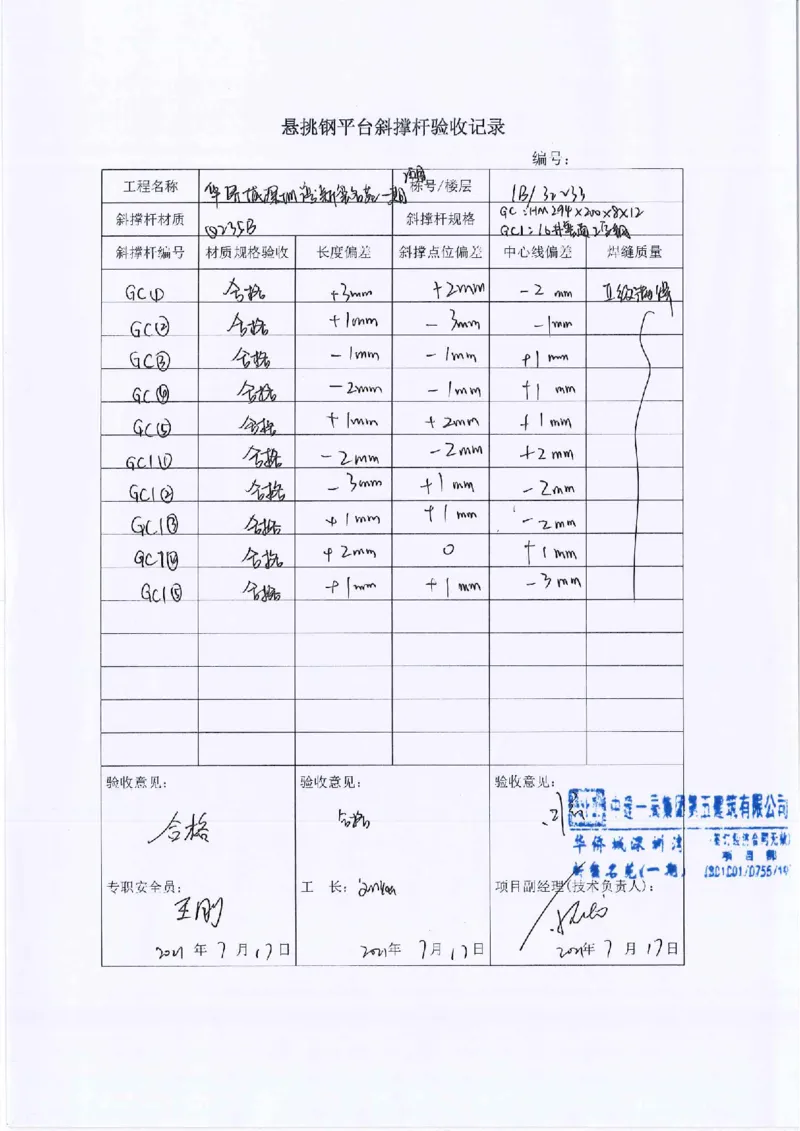 悬挑钢平台斜撑杆验收记录
编号：
工程名称 华侨城深圳湾新玺名苑一期项目 栋号/楼层 1B/32~33
斜撑杆材质 Q235B 斜撑杆规格 GC：HM294×200×8×12
GC1：16#普通工字钢
斜撑杆编号 材质规格验收 长度偏差 斜撑点位偏差 中心线偏差 焊缝质量
GC① 合格 +3mm +2mm -2mm Ⅱ级满焊
GC② 合格 +1mm -3mm -1mm
GC③ 合格 -1mm -1mm +1mm
GC④ 合格 -2mm -1mm +1mm
GC⑤ 合格 +1mm +2mm +1mm
GC1① 合格 -2mm -2mm +2mm
GC1② 合格 -3mm +1mm -2mm
GC1③ 合格 +1mm +1mm -2mm
GC1④ 合格 +2mm 0 +1mm
GC1⑤ 合格 +1mm +1mm -3mm
验收意见： 验收意见： 验收意见：
合格 合格
中建一局集团第五建筑有限公司
华侨城深圳湾
新玺名苑(一期)
(签订经济合同无效)
项目部
专职安全员： 工 长： 项目副经理(技术负责人)：
王刚
2021年7月17日 2021年7月17日 2021年7月17日